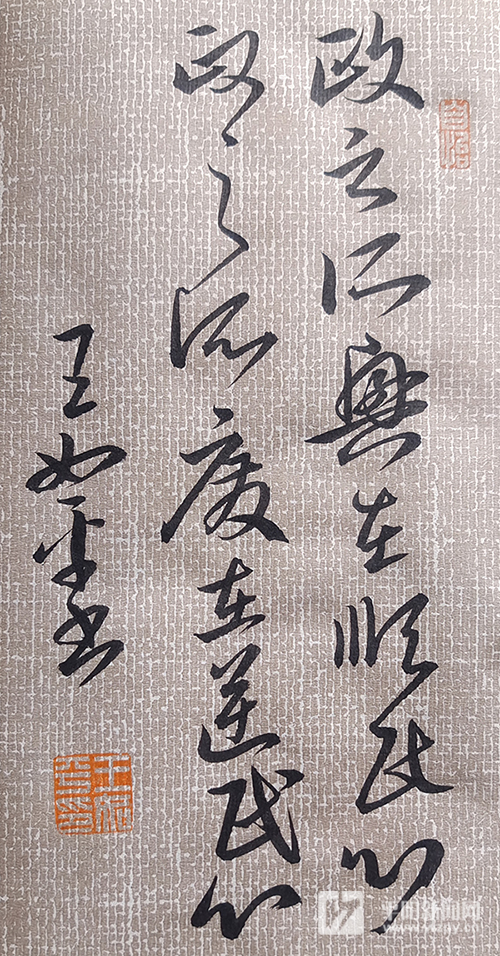 政之所興在順民心
政之所廢在逆民心
王如平書